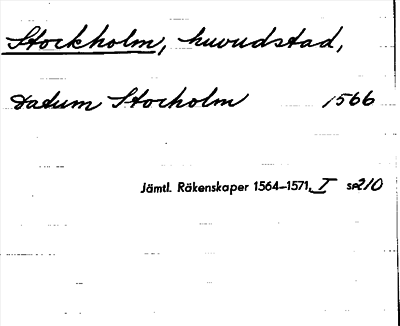 Stockholm, huvudstad,
Datum Stocholm 1566
Jämtl. Räkenskaper 1564–1571, I s. 210